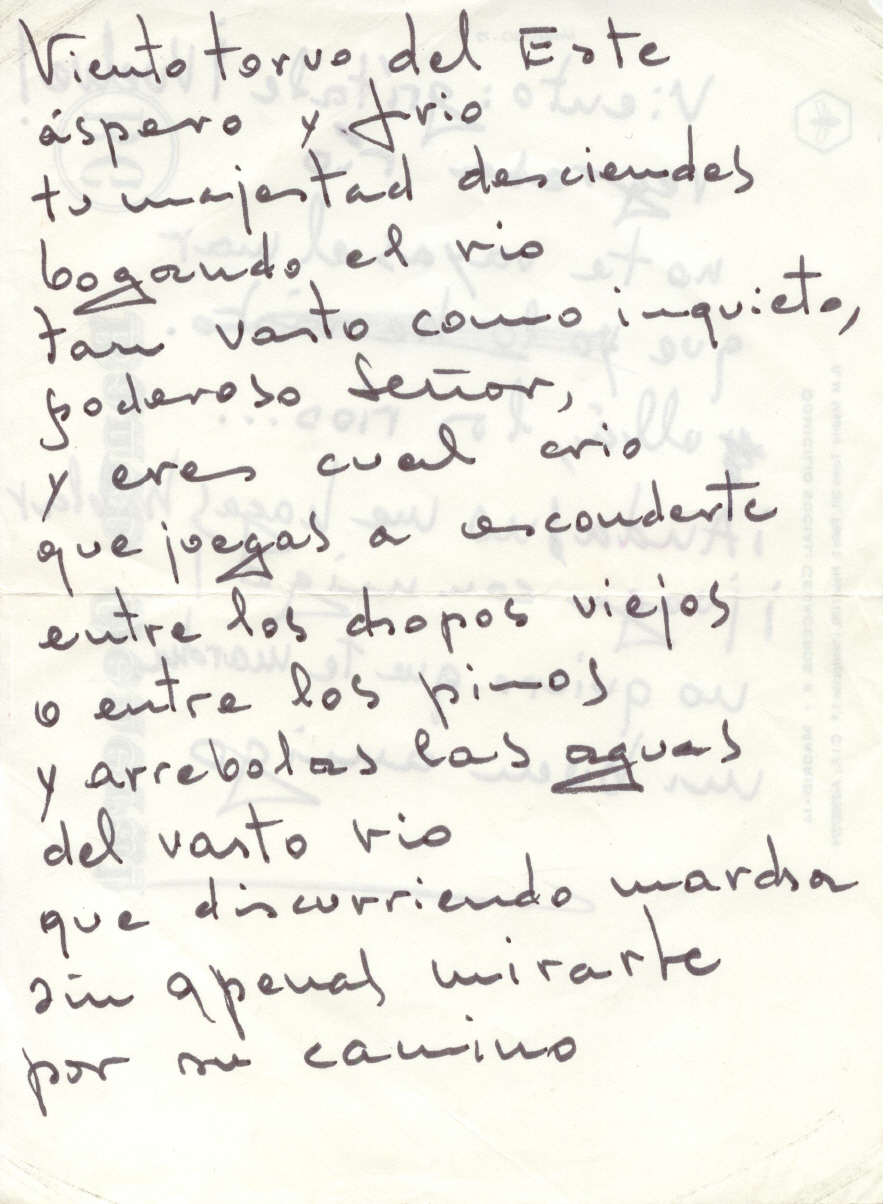 Viento torvo del Este
áspero y frio
tu majestad desciendes
bogando el rio
tan vasto como inquieto,
poderoso Señor,
y eres cual crio
que juegas a esconderte
entre los chopos viejos
o entre los pinos
y arrebolas las aguas
del vasto rio
que discurriendo marcha
sin apenas mirarte
por su camino